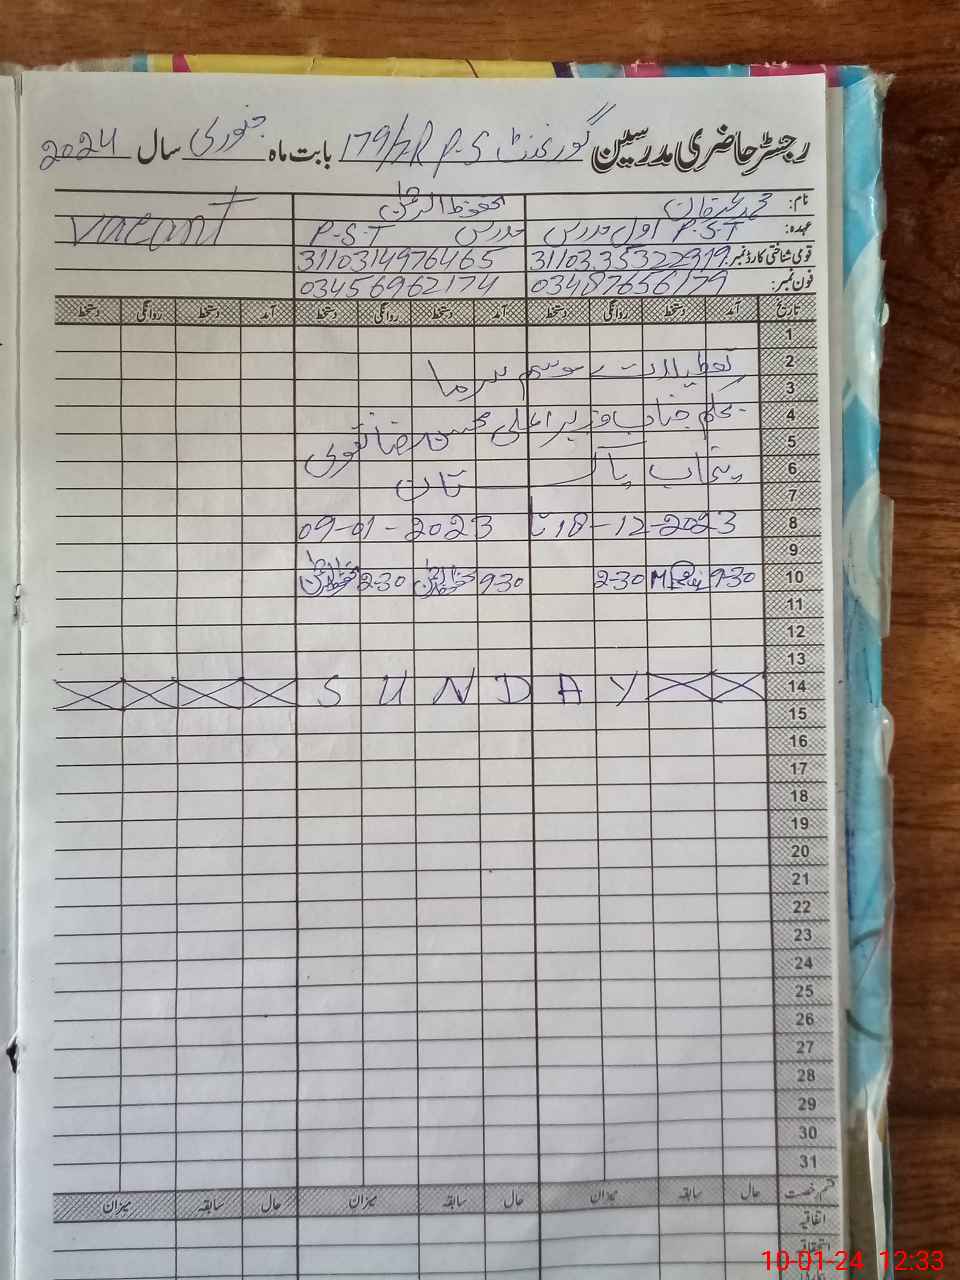 رجسٹر حاضری مدرسین گورنمنٹ P-S 179/7R بابت ماہ جنوری سال 2024
نام: محمد عرفان محفوظ الرحمن vacant
عہدہ: P.S.T اول مدرس مدرس P-S-T
قومی شناختی کارڈ نمبر: 3110335322919 3110314976465
فون نمبر: 03487656179 03456962174
تاریخ آمد دستخط روانگی دستخط آمد دستخط روانگی دستخط آمد دستخط روانگی دستخط
1
2 تعطیلات موسم سرما
3
4 بحکم جناب وزیر اعلی محسن رضا نقوی
5
6 پنجاب پاکستان
7
8 18-12-2023 تا 09-01-2023
9
10 9-30 2-30 9-30 محفوظ الرحمن 2-30 محفوظ الرحمن
11
12
13
14 SUNDAY
15
16
17
18
19
20
21
22
23
24
25
26
27
28
29
30
31
قسم رخصت حال سابقہ میزان حال سابقہ میزان حال سابقہ میزان
اتفاقیہ
استحقاقیہ
10-01-24 12:33